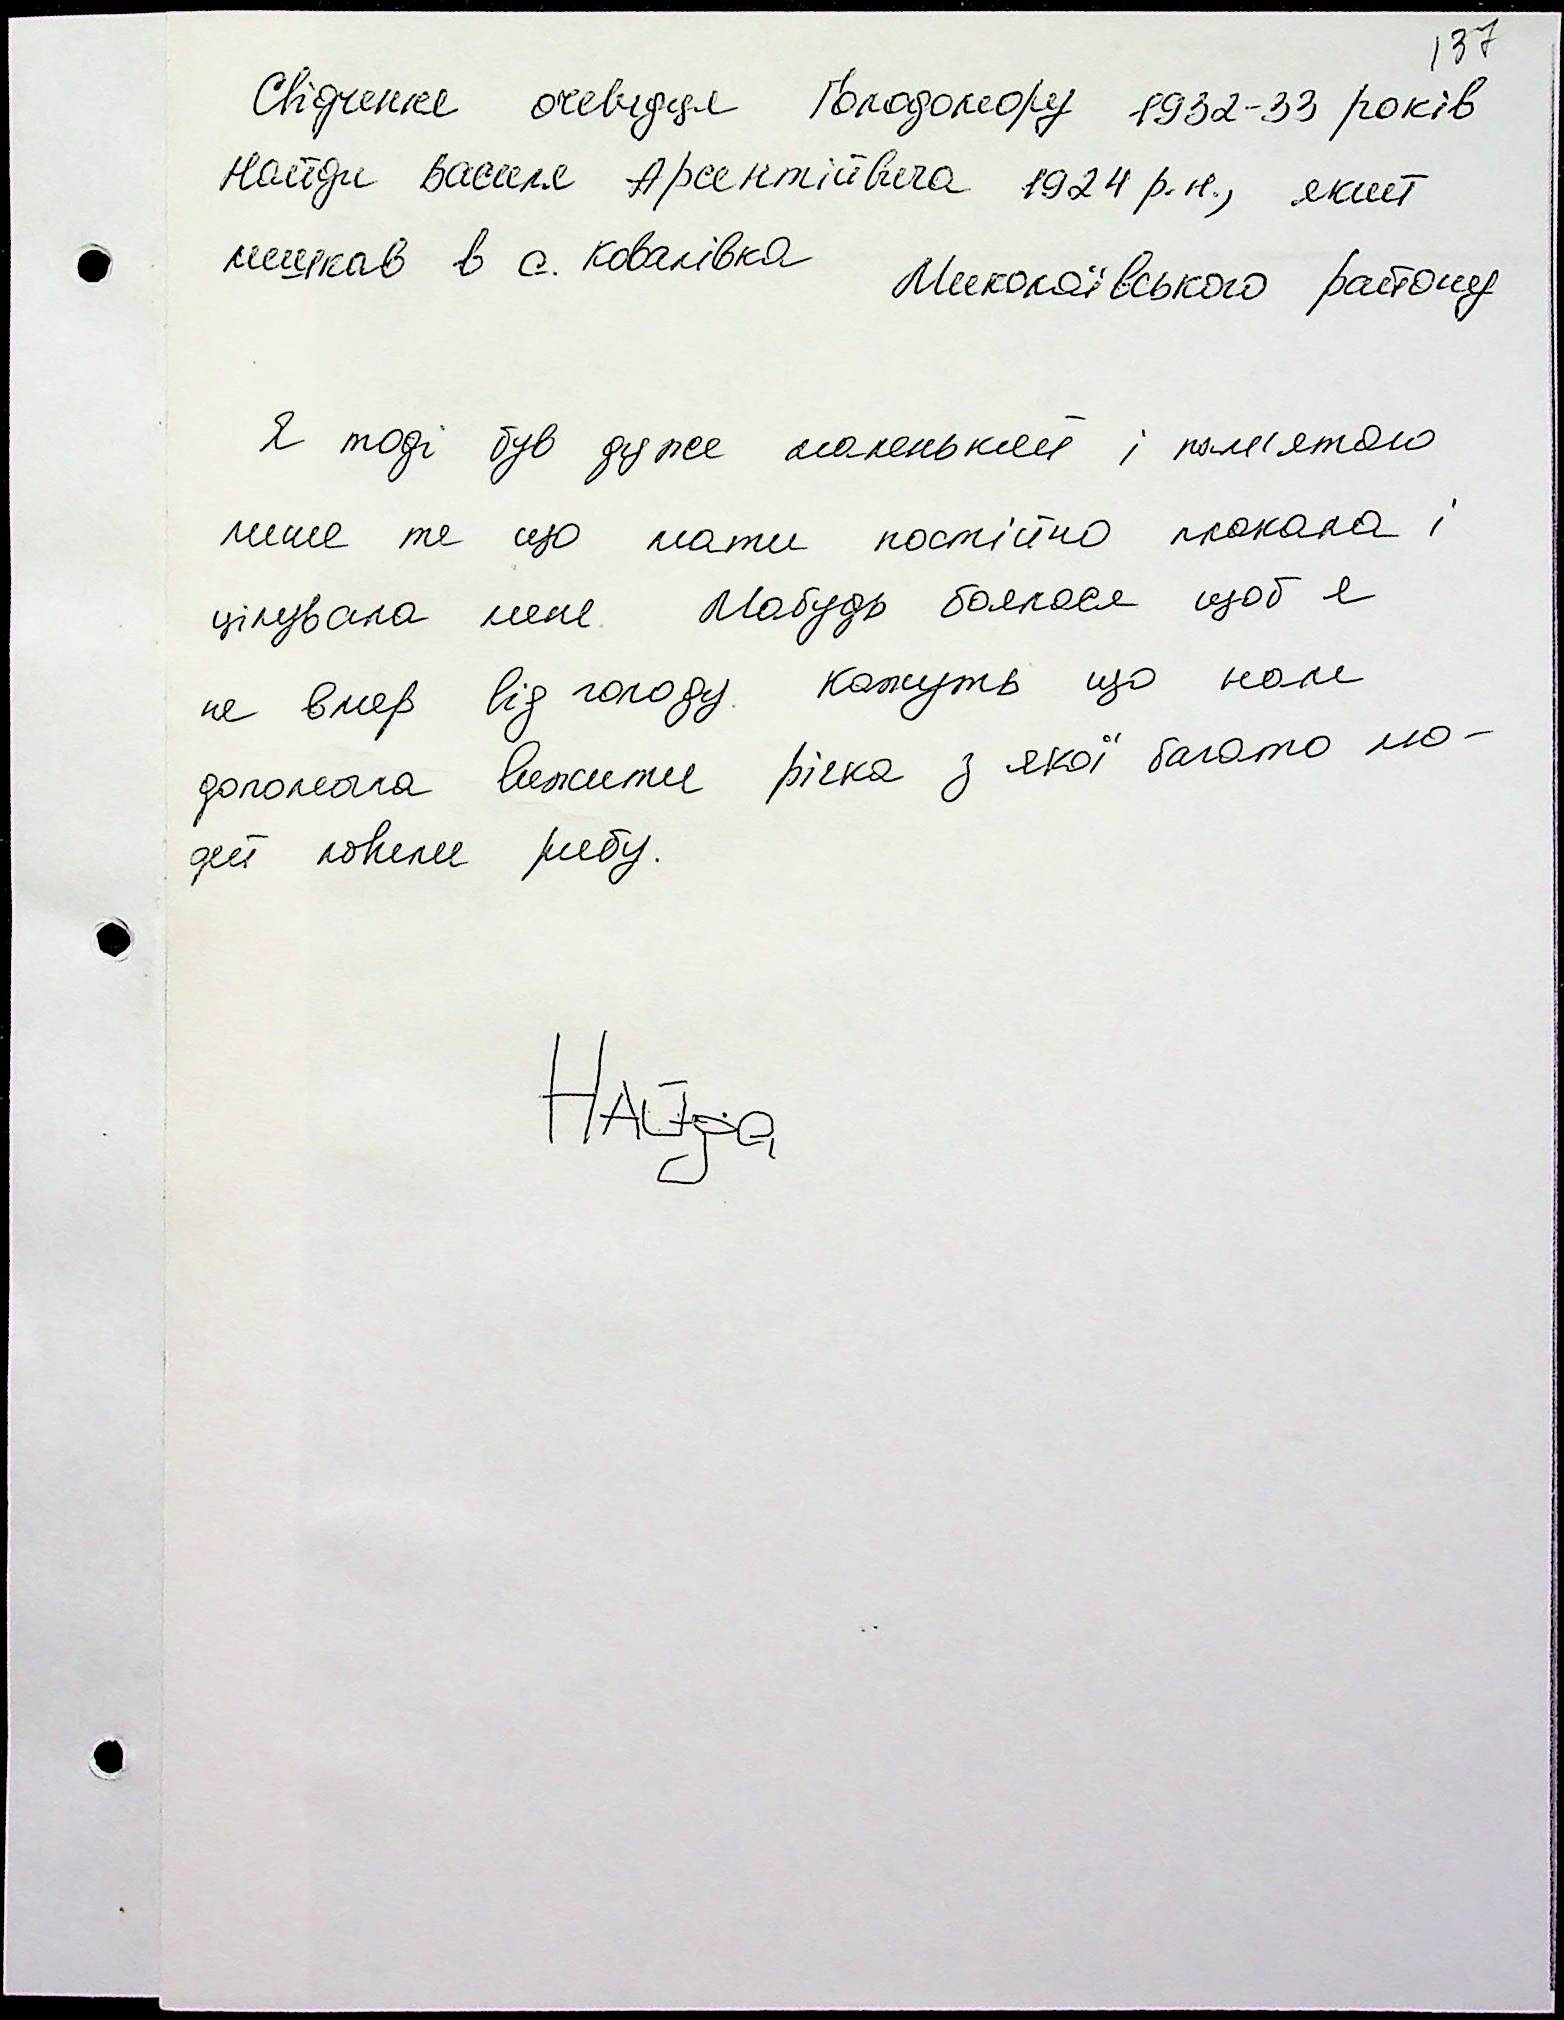 137
Свідчення очевидця Голодомору 1932-33 років
Найди Василя Арсентійвича 1924 р.н., який
мешкав в с. Ковалівка Миколаївського району
Я тоді був дуже маленький і пам'ятаю
лише те що мати постійно плакала і
цілувала мене. Мабудь боялася щоб я
не вмер від голоду. Кажуть що нам
допомогла вижити річка з якої багато лю-
дей ловили рибу.
Найда